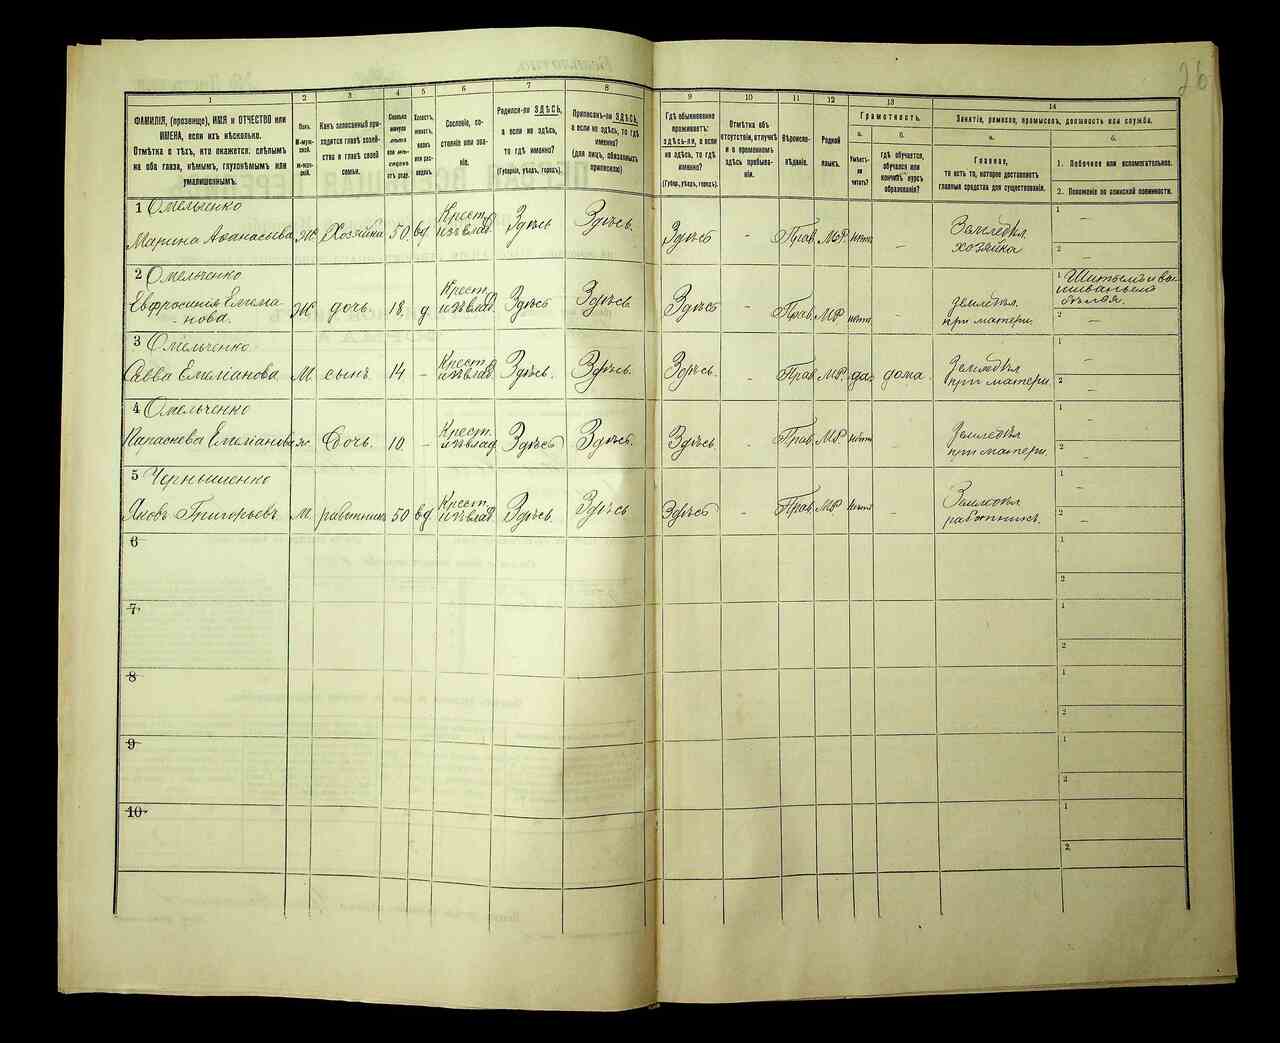 26
1
2
3
4
5
6
7
8
9
10
11
12
13
14
ФАМИЛІЯ, (прозвище), ИМЯ и ОТЧЕСТВО или
ИМЕНА, если ихъ нѣсколько.
Отмѣтка о тѣхъ, кто окажется: слѣпымъ
на оба глаза, нѣмымъ, глухонѣмымъ или
умалишеннымъ.
Полъ.
М-мужской.
Ж-женскій.
Какъ записанный приходится главѣ хозяйства и главѣ своей семьи.
Сколько минуло лѣтъ или мѣсяцевъ отъ роду.
Холостъ, женатъ, вдовъ или разведенъ.
Сословіе, состояніе или званіе.
Родился-ли ЗДѢСЬ,
а если не здѣсь,
то гдѣ именно?
(Губернія, уѣздъ, городъ).
Приписанъ-ли ЗДѢСЬ,
а если не здѣсь, то гдѣ
именно?
(для лицъ, обязанныхъ
припискою)
Гдѣ обыкновенно
проживаетъ:
здѣсь-ли, а если
не здѣсь, то гдѣ
именно?
(Губер, уѣздъ, городъ).
Отмѣтка объ
отсутствіи, отлучкѣ
и о временномъ
здѣсь пребываніи.
Вѣроисповѣданіе.
Родной
языкъ.
Грамотность.
а.
Умѣетъ-ли
читать?
б.
гдѣ обучается,
обучался или
кончилъ курсъ
образованія?
Занятіе, ремесло, промыселъ, должность или служба.
а.
Главное,
то есть то, которое доставляетъ
главныя средства для существованія.
б.
1. Побочное или вспомогательное.
2. Положеніе по воинской повинности.
1 Омельченко
Марина Аѳанасьева Ж Хозяйка 50 вд Крест. изъ влад. Здѣсь Здѣсь. Здѣсь - Прав. М.Р. нѣтъ - Земледѣл. хозяйка 1 – 2 –
2 Омельченко
Евфросинія Емеліанова. Ж дочь 18 д Крест. изъ влад. Здѣсь Здѣсь. Здѣсь - Прав. МР нѣтъ - Земледѣл. при матери. 1 Шитьемъ и вышиваньемъ бѣлья. 2 –
3 Омельченко
Савва Емеліанова. М. сынъ 14 - Крест. изъ влад. Здѣсь. Здѣсь. Здѣсь. - Прав МР. да дома. Земледѣл при матери. 1 – 2 –
4 Омельченко
Параскева Емеліанова ж. Дочь. 10 - Крест. изъ влад. Здѣсь Здѣсь. Здѣсь. - Прав МР нѣтъ - Земледѣл при матери. 1 – 2 –
5 Чернышенко
Яковъ Григорьевъ. М. работникъ 50 вд. Крест. изъ влад. Здѣсь. Здѣсь Здѣсь - Прав. МР Нѣтъ - Земледѣл работникъ. 1 – 2 –
6 1 2
7 1 2
8 1 2
9 1 2
10 1 2